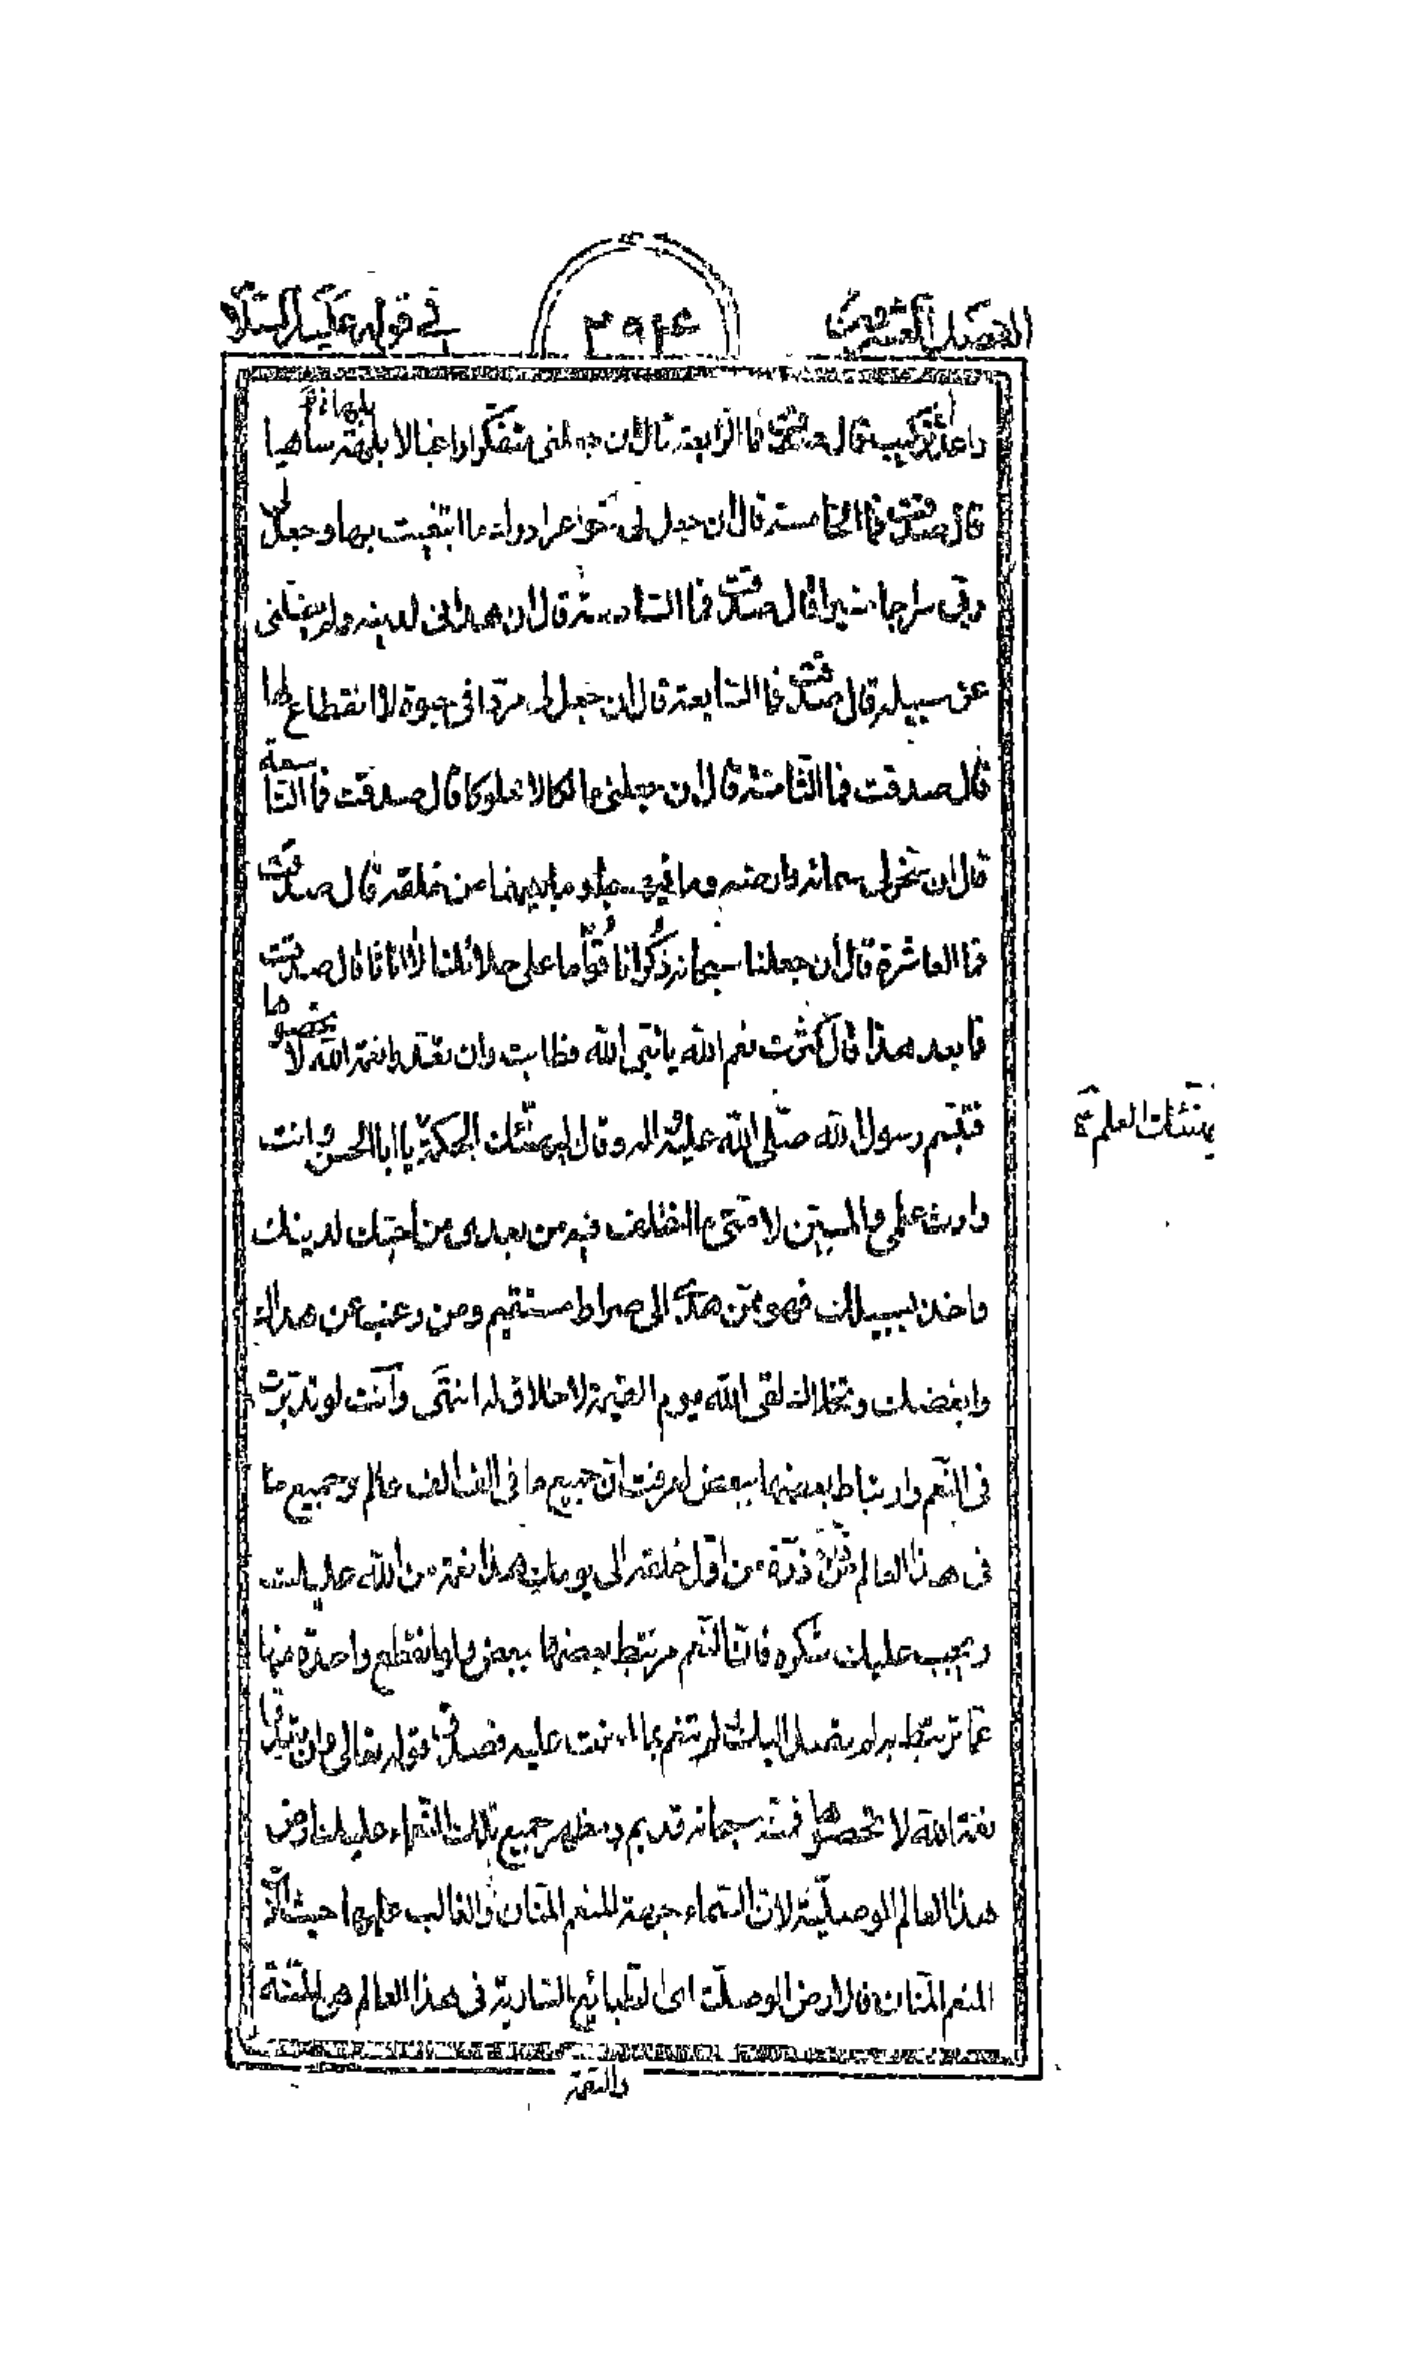 الفصل العشرون
٣٩٤
في قوله عليه السلام
واعدل تركيب قال صدقت فما الرابعة قال ان جعلني متفكرا راغبا لا بلهة ساهيا
قال صدقت فما الخامسة قال ان جعل لي شواعر ادرك ما ابتغيت بها وجعل لي
سراجا منيرا قال صدقت فما السادسة قال ان هداني لدينه ولم يضلني
عن سبيله قال صدقت فما السابعة قال ان جعل لي مردا في حيوة لا انقطاع لها
قال صدقت فما الثامنة قال ان جعلني مالكا لا مملوكا قال صدقت فما التاسعة
قال ان سخر لي سمائه وارضه وما فيهما وما بينهما من خلقه قال صدقت
فما العاشرة قال ان جعلنا سبحانه ذكرانا قواما على حلائلنا لا اناثا قال صدقت
فما بعد هذا قال كثرت نعم الله يا نبي الله فطابت وان تعدوا نعمة الله لا تحصوها
فتبسم رسول الله صلى الله عليه واله وقال ليهنئك الحكمة يا ابا الحسن وانت
ليهنئك العلم خ
وارث علمي والمبين لامتي ما اختلف فيه من بعدي من احبك لدينك
واخذ بسبيلك فهو ممن هدي الى صراط مستقيم ومن رغب عن هداك
وابغضك لقى الله يوم القيمة لا خلاق له انتهى وانت لو تدبرت
في النعم وارتباط بعضها ببعض لعرفت ان جميع ما في الف الف عالم وجميع ما
في هذا العالم ذرة من اول خلقه الى يومك هذا نعمة من الله عليك
ويجب عليك شكره فان النعم مرتبط بعضها ببعض ولو انقطع واحدة منها
عما ترتبط به لم يصل اليك ولم تنعم بما انت عليه فصدق قوله تعالى وان تعدوا
نعمة الله لا تحصوها فمنه سبحانه قديم ومظهر جميع تلك النعماء عليك ارض
هذا العالم الوصلية لان السماء جهة المنعم المنان والغالب عليها حيث
المنعم المنان فالارض الوصلة اي الطبايع السارية في هذا العالم هي المنة
والنعمة